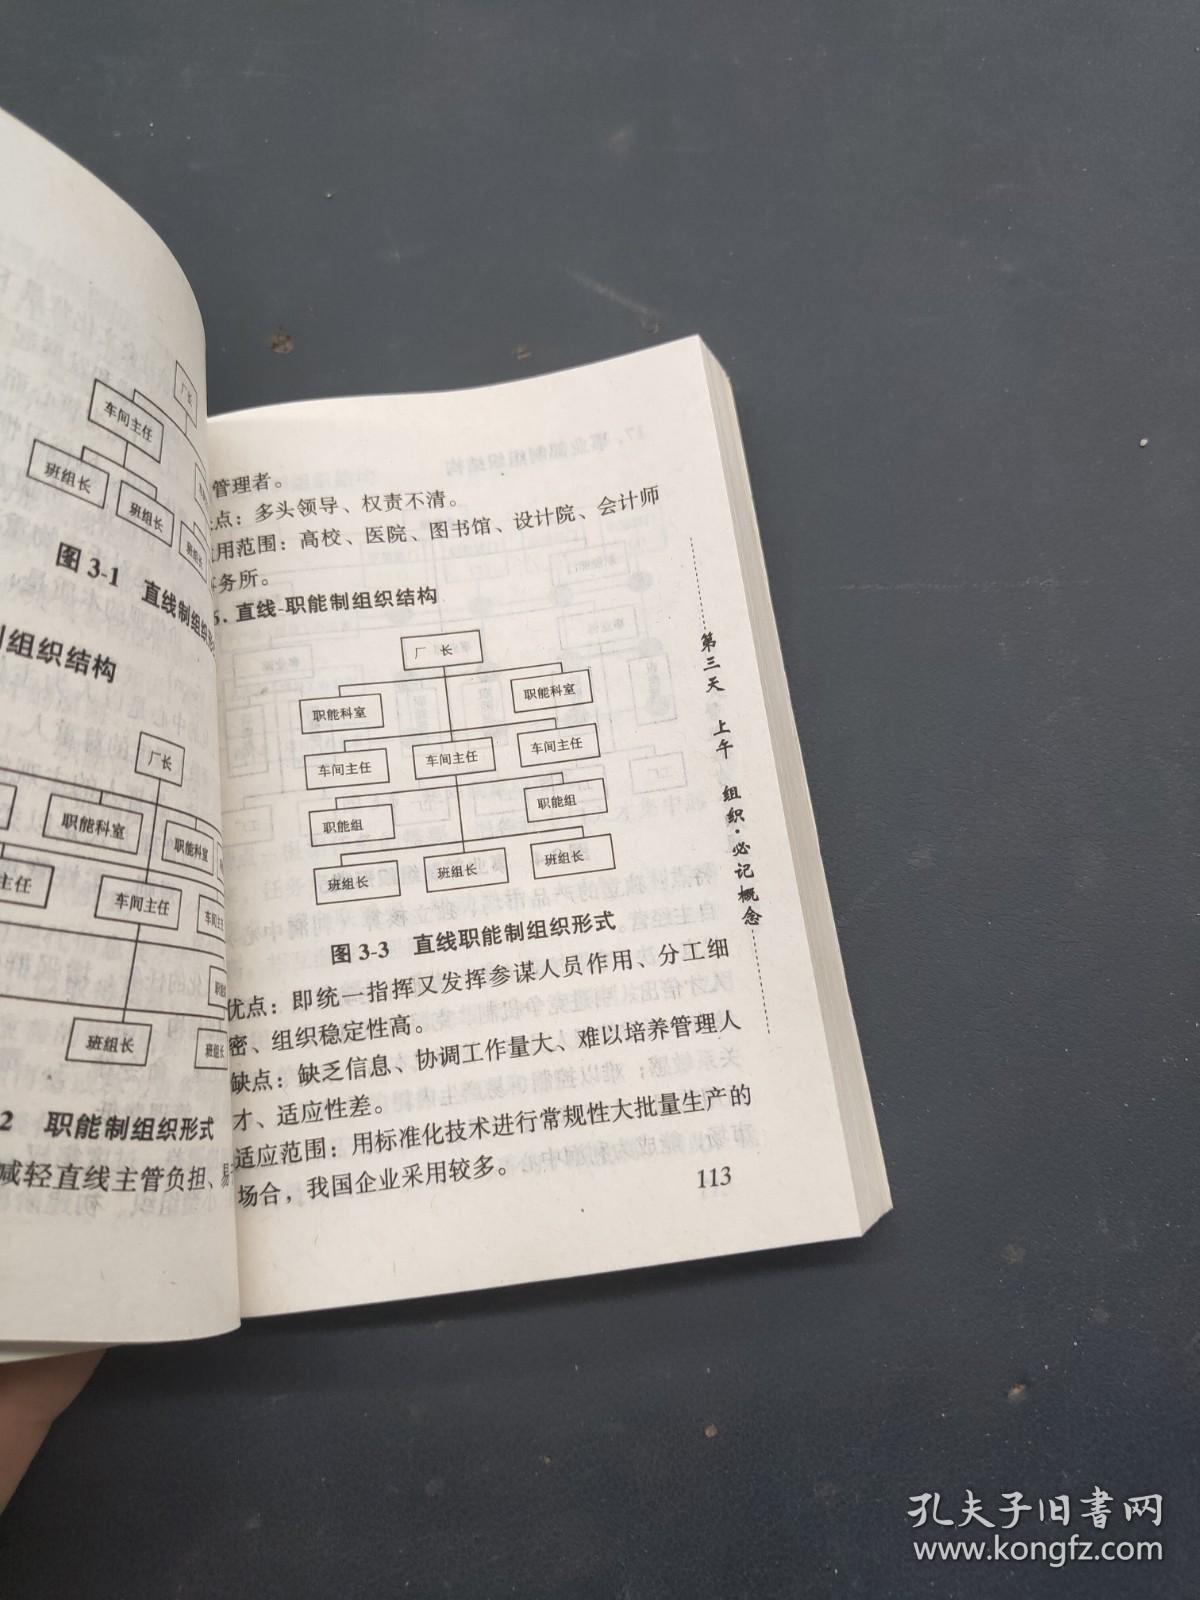 厂长
车间主任
班组长
班组长
班组长
图 3-1 直线制组织形
组织结构
厂长
职能科室
职能科室
主任
车间主任
车间主
班组长
班组长
2 职能制组织形式
减轻直线主管负担、易
管理者。
点：多头领导、权责不清。
用范围：高校、医院、图书馆、设计院、会计师
务所。
6. 直线-职能制组织结构
厂 长
职能科室
职能科室
车间主任
车间主任
车间主任
职能组
职能组
班组长
班组长
班组长
图 3-3 直线职能制组织形式
优点：即统一指挥又发挥参谋人员作用、分工细
密、组织稳定性高。
缺点：缺乏信息、协调工作量大、难以培养管理人
才、适应性差。
适应范围：用标准化技术进行常规性大批量生产的
场合，我国企业采用较多。
113
第三天 上午 组织·必记概念
孔夫子旧书网
www.kongfz.com